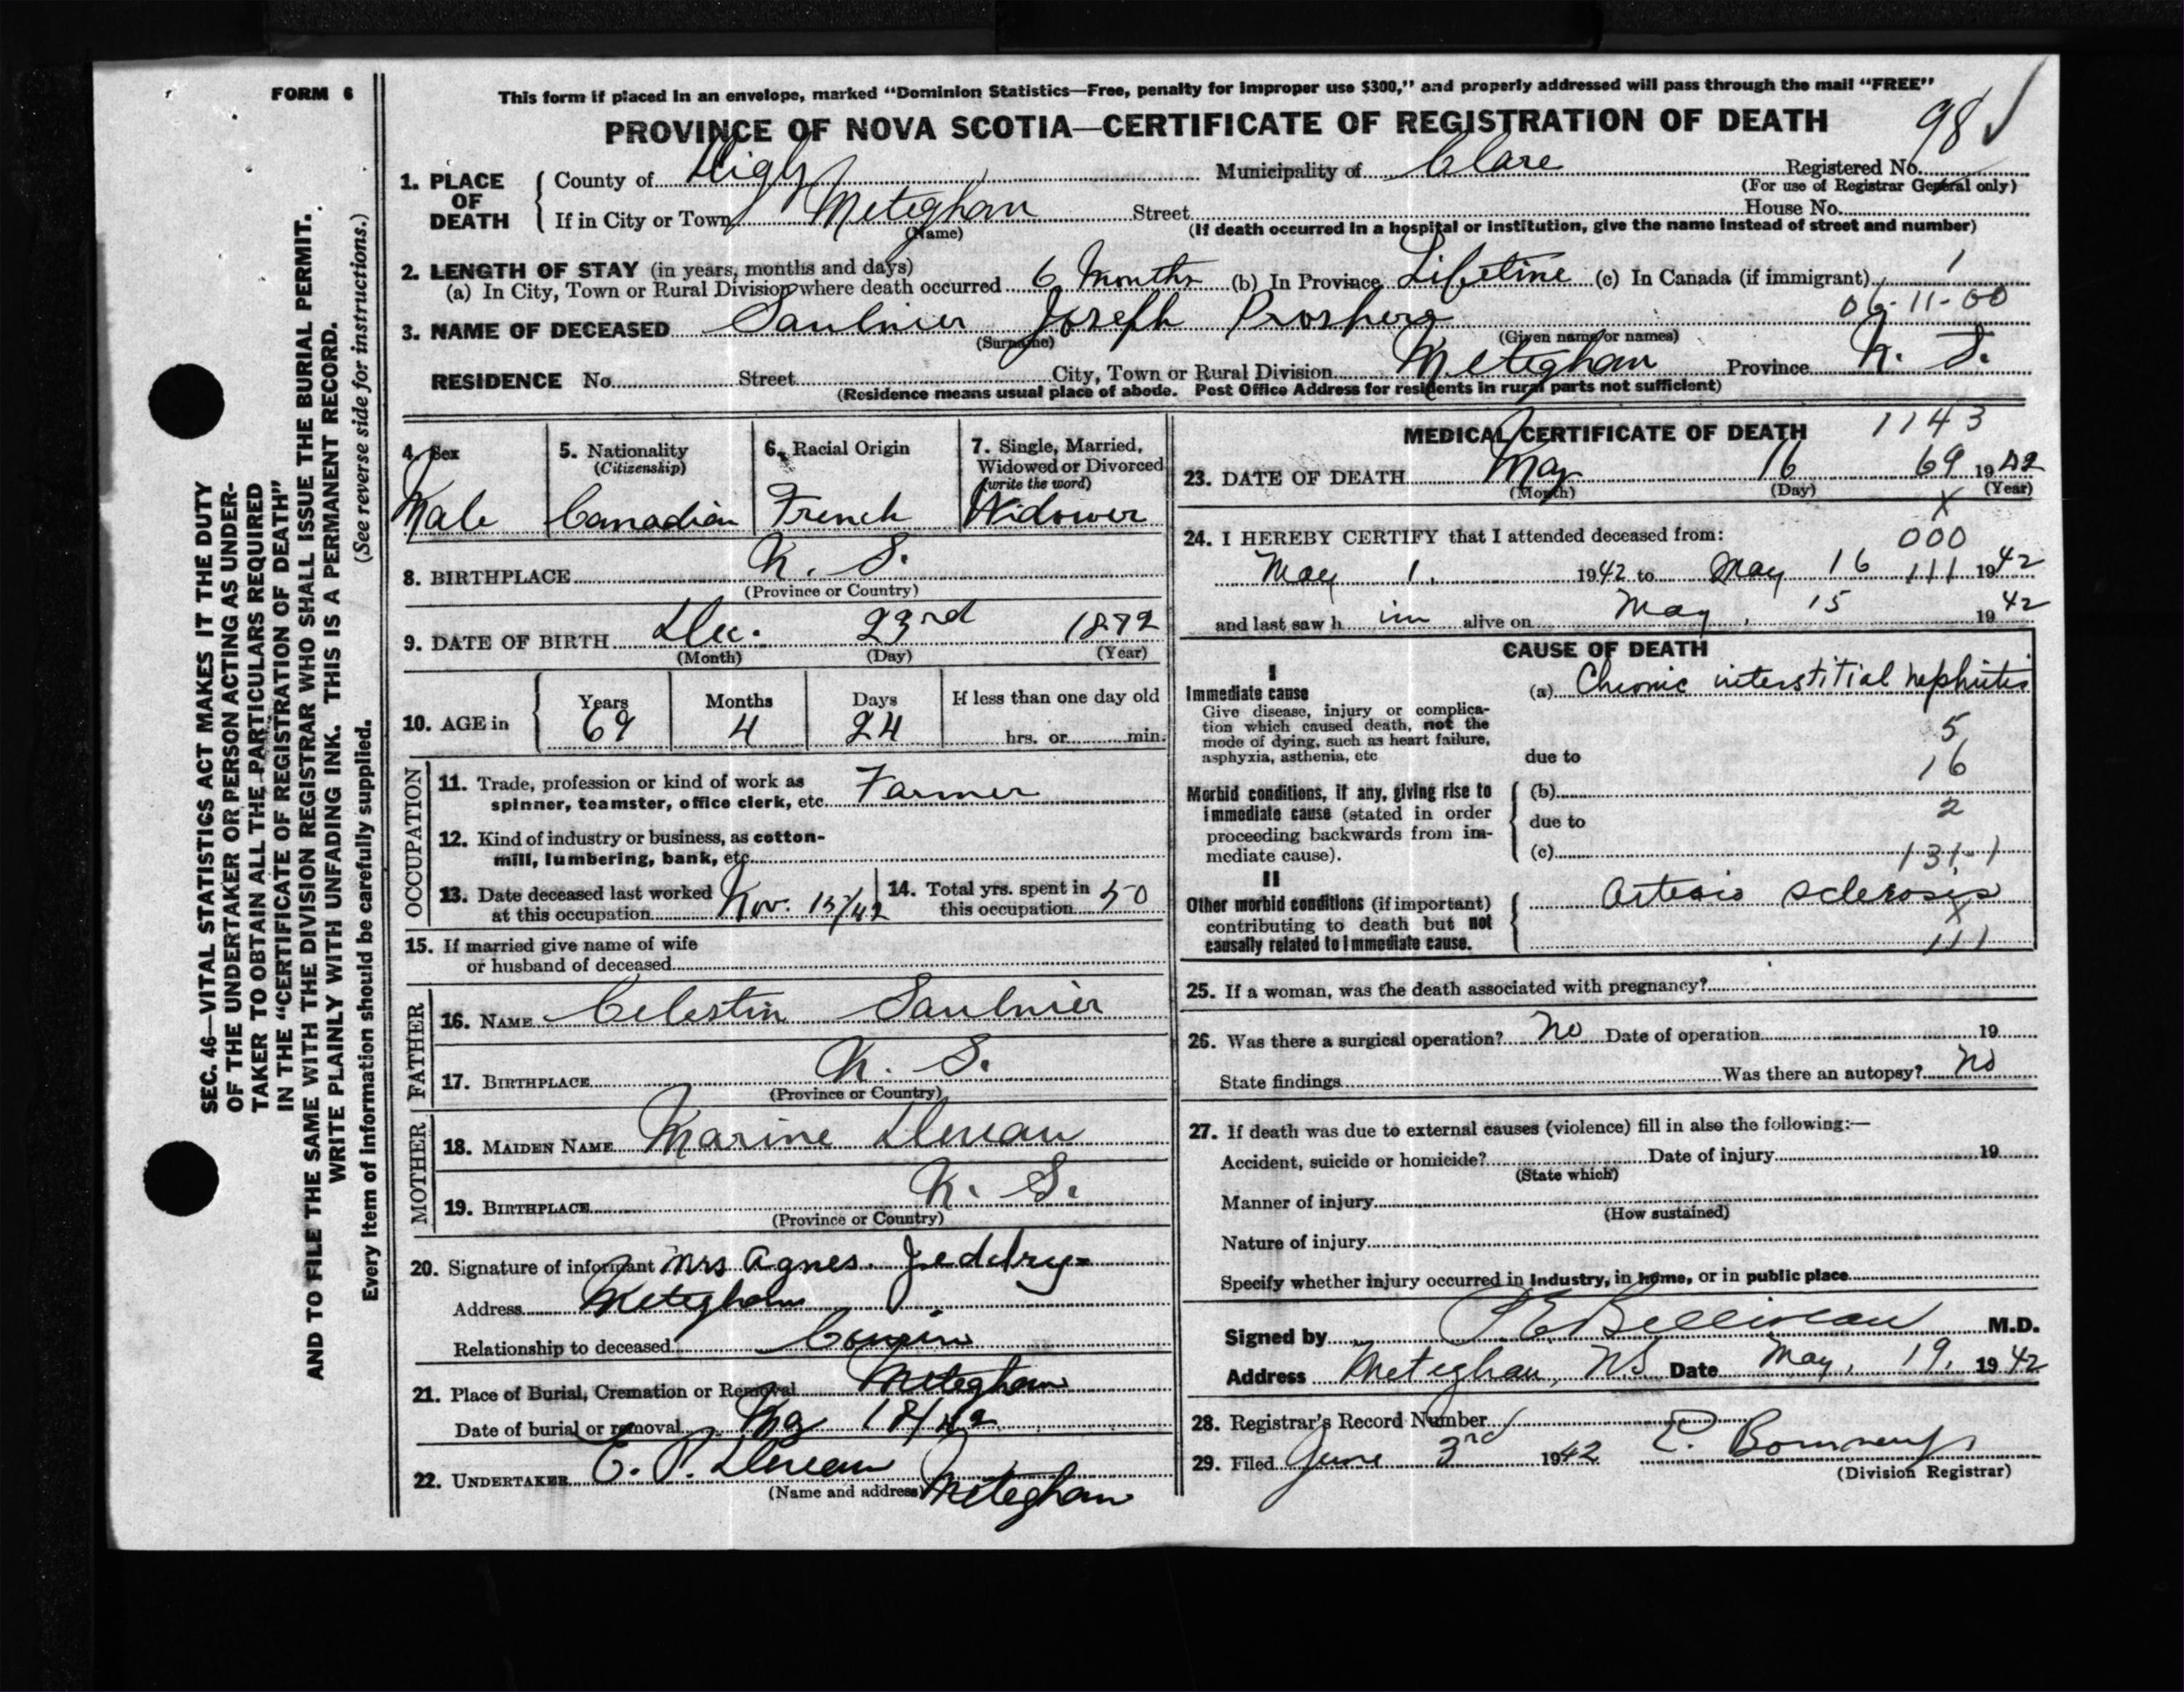 FORM 6
This form if placed in an envelope, marked “Dominion Statistics—Free, penalty for improper use $300,” and properly addressed will pass through the mail “FREE”
PROVINCE OF NOVA SCOTIA—CERTIFICATE OF REGISTRATION OF DEATH
98 ✓
1. PLACE OF DEATH
County of Digby Municipality of Clare Registered No.
(For use of Registrar General only)
If in City or Town Meteghan Street House No.
(Name) (If death occurred in a hospital or institution, give the name instead of street and number)
2. LENGTH OF STAY (in years, months and days)
(a) In City, Town or Rural Division where death occurred 6 Months (b) In Province Lifetime (c) In Canada (if immigrant) 1
06-11-00
3. NAME OF DECEASED Saulnier Joseph Prospere
(Surname) (Given name or names)
RESIDENCE No. Street City, Town or Rural Division Meteghan Province N. S.
(Residence means usual place of abode. Post Office Address for residents in rural parts not sufficient)
4. Sex
Male
5. Nationality
(Citizenship)
Canadian
6. Racial Origin
French
7. Single, Married,
Widowed or Divorced
(write the word)
Widower
8. BIRTHPLACE N. S.
(Province or Country)
9. DATE OF BIRTH Dec. 23rd 1872
(Month) (Day) (Year)
10. AGE in
Years Months Days If less than one day old
69 4 24 hrs. or min.
OCCUPATION
11. Trade, profession or kind of work as
spinner, teamster, office clerk, etc. Farmer
12. Kind of industry or business, as cotton-
mill, lumbering, bank, etc.
13. Date deceased last worked
at this occupation Nov. 15/42
14. Total yrs. spent in
this occupation 50
15. If married give name of wife
or husband of deceased
FATHER
16. NAME Celestin Saulnier
17. BIRTHPLACE N. S.
(Province or Country)
MOTHER
18. MAIDEN NAME Marine Deveau
19. BIRTHPLACE N. S.
(Province or Country)
20. Signature of informant Mrs Agnes Jeddry
Address Meteghan
Relationship to deceased Cousin
21. Place of Burial, Cremation or Removal Meteghan
Date of burial or removal May 18/42
22. UNDERTAKER Deveau
(Name and address) Meteghan
MEDICAL CERTIFICATE OF DEATH 1143
23. DATE OF DEATH May 16 69 1942
(Month) (Day) (Year)
X
24. I HEREBY CERTIFY that I attended deceased from: 000
May 1, 1942 to May 16 111 1942
and last saw h im alive on May, 15 1942
CAUSE OF DEATH
I
Immediate cause
Give disease, injury or complica-
tion which caused death, not the
mode of dying, such as heart failure,
asphyxia, asthenia, etc
(a) Chronic interstitial nephritis
5
due to
16
Morbid conditions, if any, giving rise to
immediate cause (stated in order
proceeding backwards from im-
mediate cause).
(b)
2
due to
(c) 131-1
II
Other morbid conditions (if important)
contributing to death but not
causally related to immediate cause.
Arterio sclerosis
X
111
25. If a woman, was the death associated with pregnancy?
26. Was there a surgical operation? No Date of operation 19
State findings Was there an autopsy? No
27. If death was due to external causes (violence) fill in also the following:—
Accident, suicide or homicide? Date of injury 19
(State which)
Manner of injury
(How sustained)
Nature of injury
Specify whether injury occurred in industry, in home, or in public place
Signed by Belliveau M.D.
Address Meteghan, N.S. Date May, 19, 1942
28. Registrar's Record Number
29. Filed June 3rd 1942
(Division Registrar)
SEC. 46—VITAL STATISTICS ACT MAKES IT THE DUTY
OF THE UNDERTAKER OR PERSON ACTING AS UNDER-
TAKER TO OBTAIN ALL THE PARTICULARS REQUIRED
IN THE “CERTIFICATE OF REGISTRATION OF DEATH”
AND TO FILE THE SAME WITH THE DIVISION REGISTRAR WHO SHALL ISSUE THE BURIAL PERMIT.
WRITE PLAINLY WITH UNFADING INK. THIS IS A PERMANENT RECORD.
Every item of information should be carefully supplied. (See reverse side for instructions.)